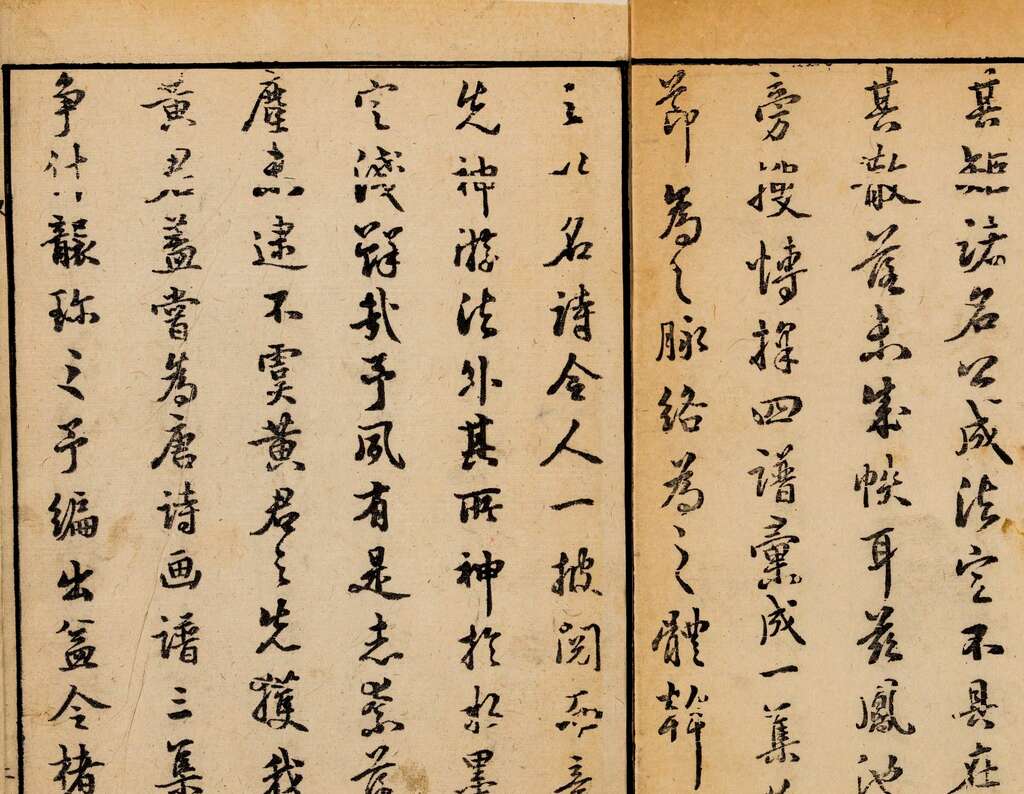 其矩諸名公成法寔不具在
其散落未成帙耳茲鳳池
旁蒐博採四譜彙成一集
節為之脈絡為之體辤
之以名詩令人一披閱而意
先神游法外其所神於水墨
寔淺鮮哉予夙有是志柰
塵未逮不虞黃君之先獲我
黃君蓋嘗為唐詩画譜三集
争什襲珍之予編出益令楮